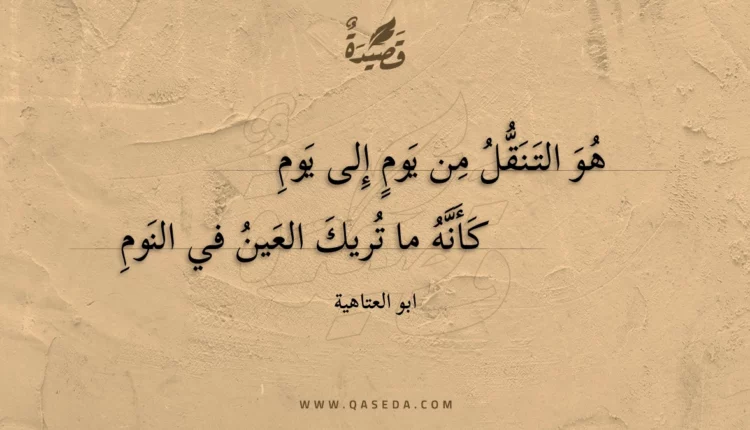 قَصِيْدَةٌ
هُوَ التَنَقُّلُ مِن يَومٍ إِلى يَومِ
كَأَنَّهُ ما تُريكَ العَينُ في النَومِ
ابو العتاهية
WWW.QASEDA.COM